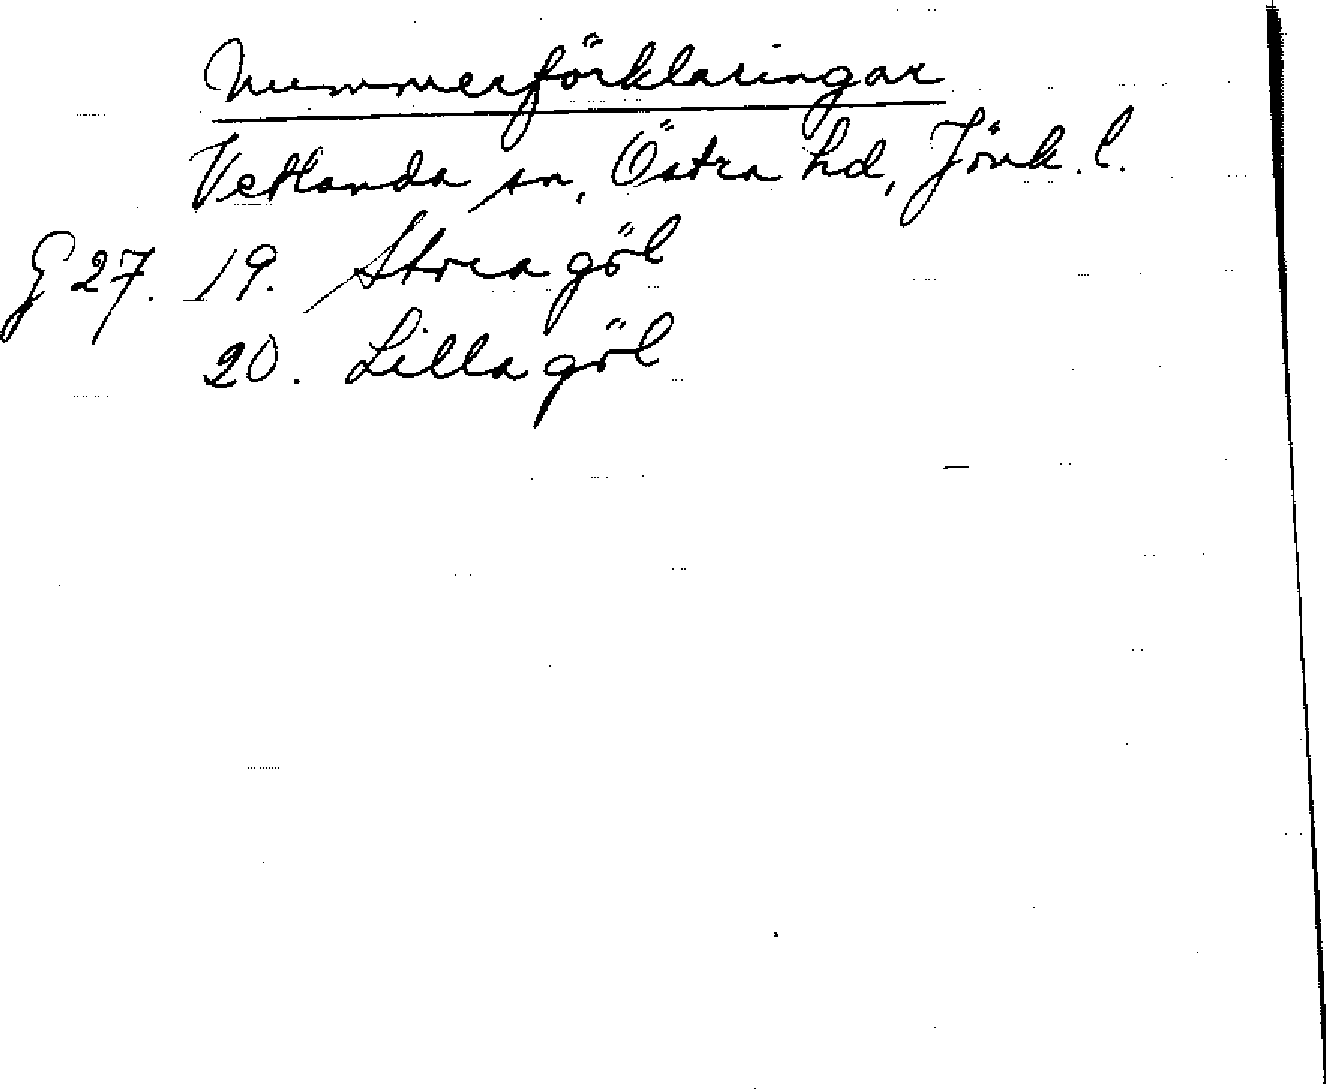 Nummerförklaringar
Vetlanda sn, Östra hd, Jönk. l.
G 27. 19. Storagöl
20. Lillagöl